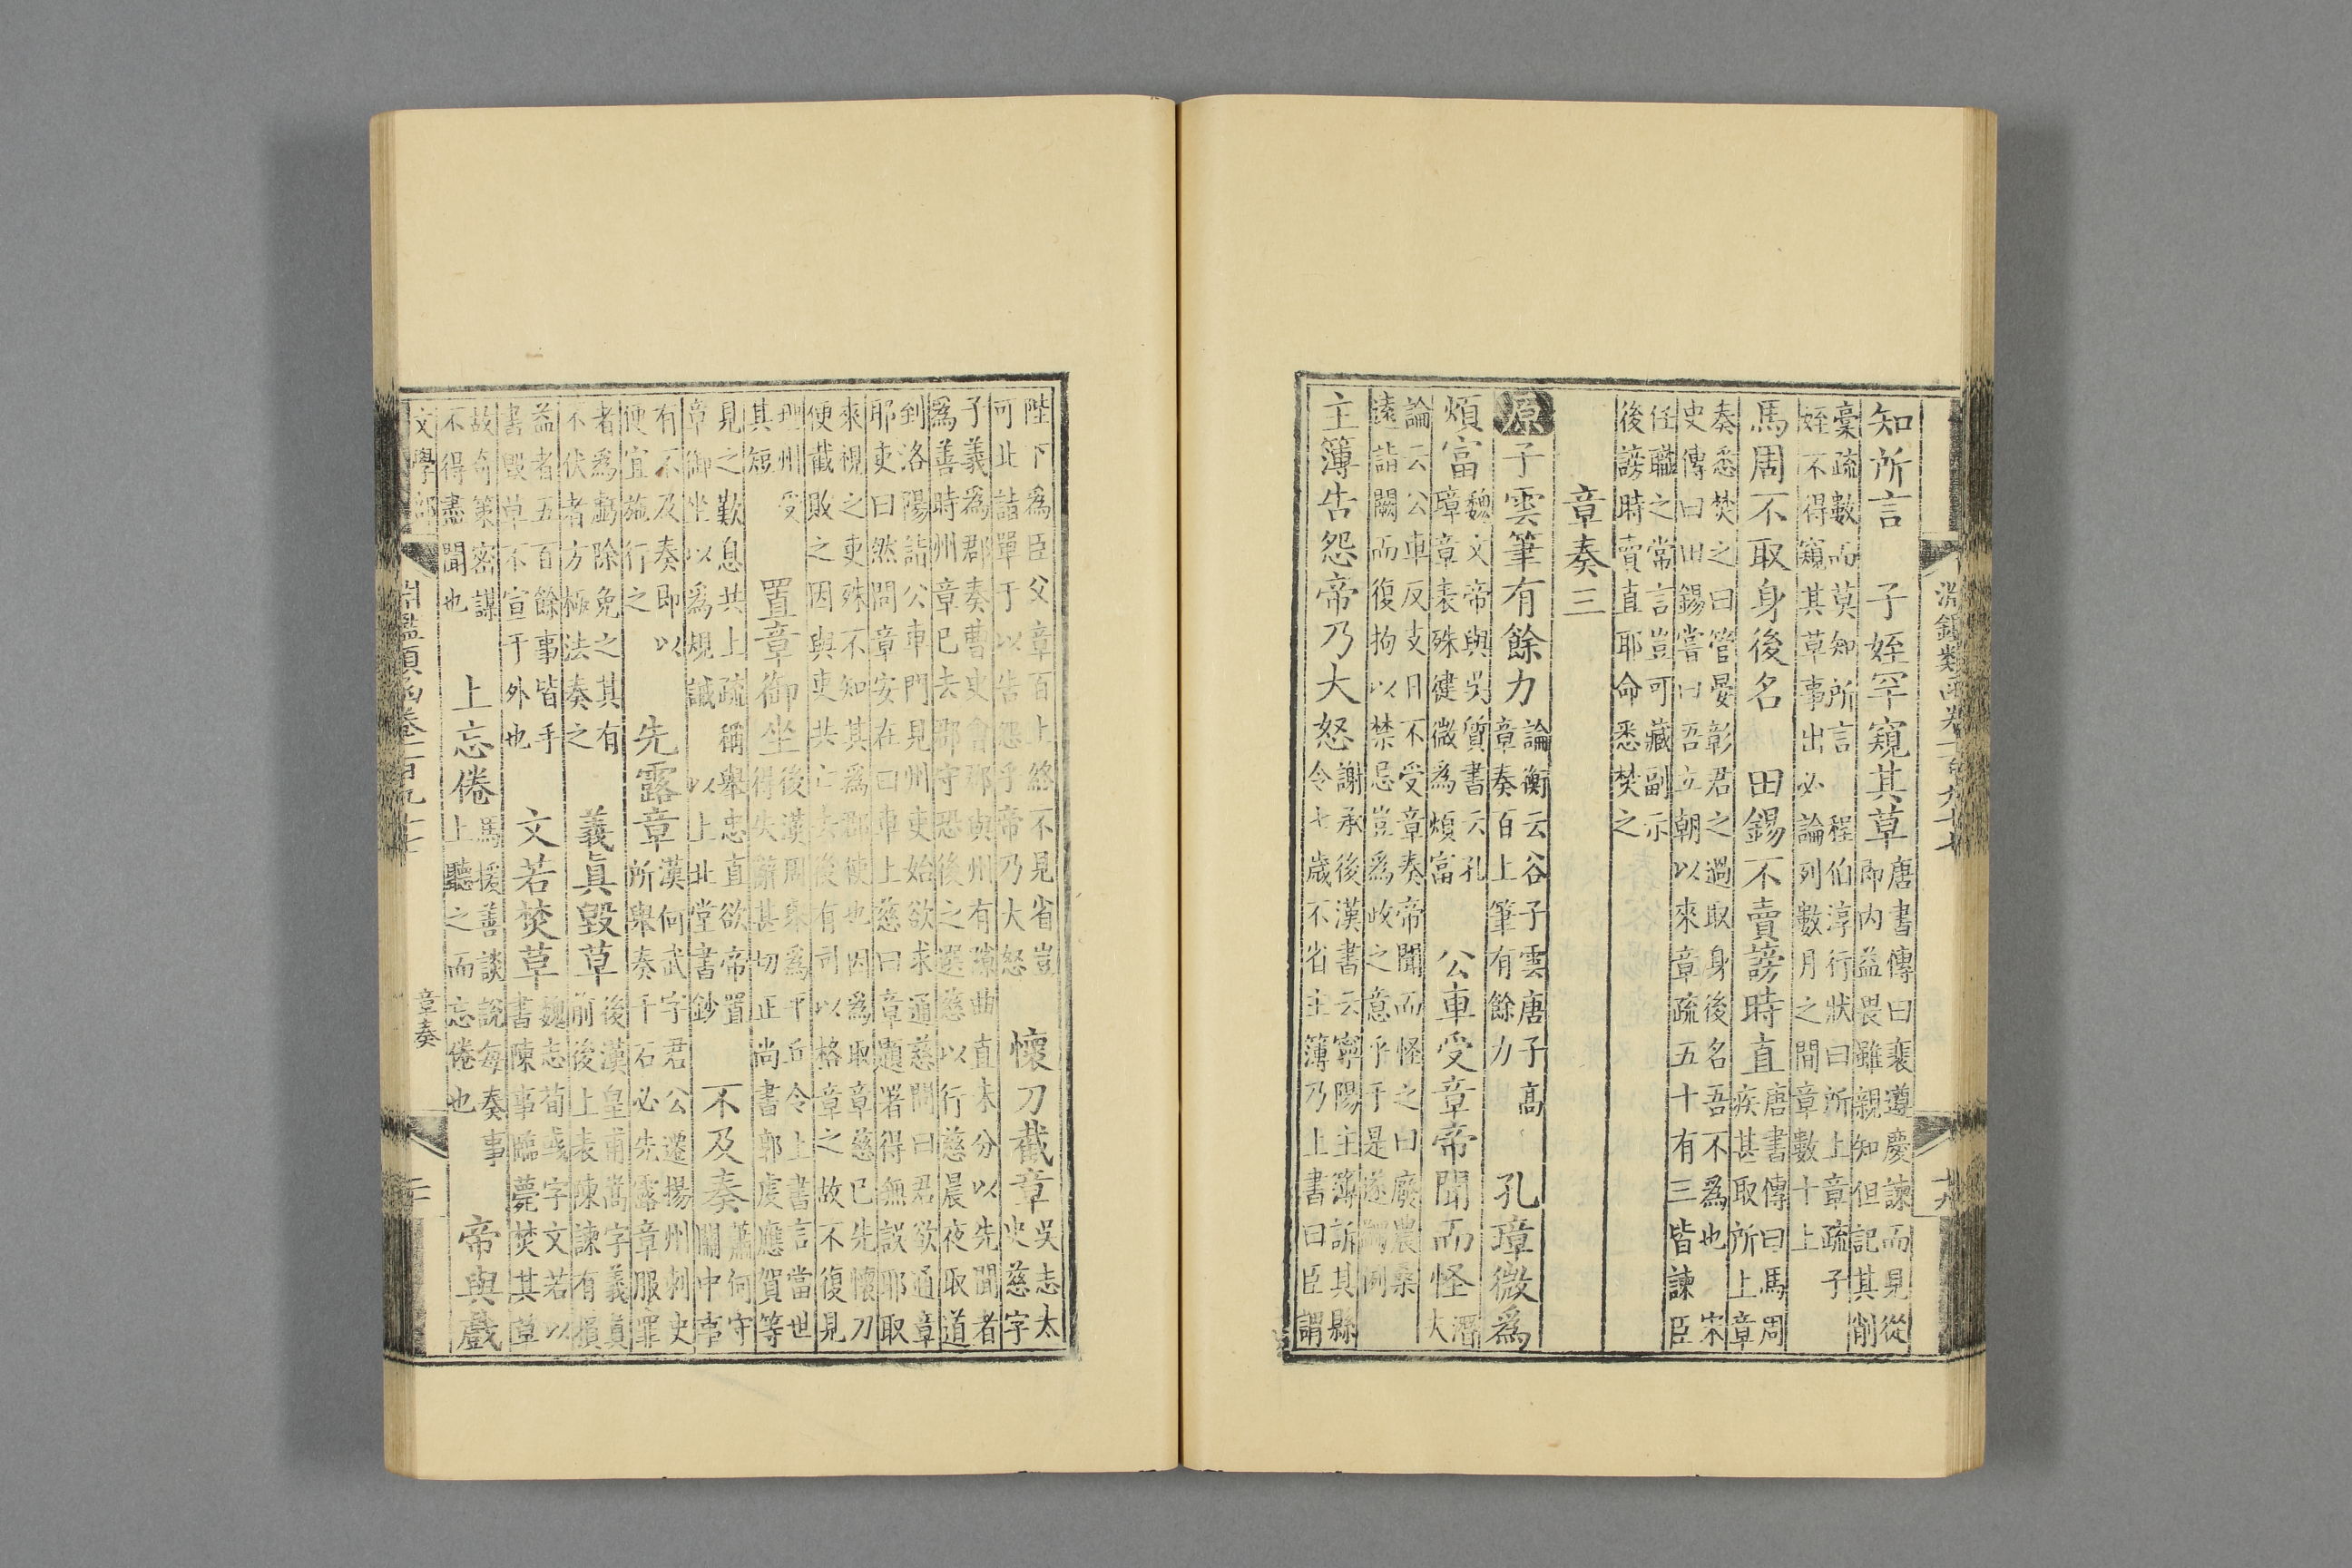 淵鑑類函卷一百九十七 十九
知所言 子姪罕窺其草
唐書傳曰裴遵慶諫而見從
即內益畏雖親知但記其削
稾疏數而莫知所言 程伯淳行狀曰所上章疏子
姪不得窺其草事出必論列數月之間章數十上
馬周不取身後名 田錫不賣謗時直
唐書傳曰馬周
疾甚取所上章
奏悉焚之曰管晏彰君之過取身後名吾不為也 宋
史傳曰田錫嘗曰吾立朝以來章疏五十有三皆諫臣
任職之常言豈可藏副示
後謗時賣直耶命悉焚之
章奏三
原 子雲筆有餘力
論衡云谷子雲唐子高
章奏百上筆有餘力
孔璋微為
煩富
魏文帝與吳質書云孔
璋章表殊健微為煩富
公車受章帝聞而怪
潛
大
論云公車反支日不受章奏帝聞而怪之曰廢農桑
遠詣闕而復拘以禁忌豈為政之意乎于是遂蠲制
主簿告怨帝乃大怒
謝承後漢書云寧陽主簿訴其縣
令七歲不省主簿乃上書曰臣謂
陛下為臣父章百上終不見省豈
可北詣單于以告怨乎帝乃大怒
懷刀截章
吳志太
史慈字
子義為郡奏曹史會郡與州有隙曲直未分以先聞者
為善時州章已去郡守恐後之選慈以行慈晨夜取道
到洛陽詣公車門見州吏始欲求通慈問曰君欲通章
耶吏曰然問章安在曰車上慈曰章題署得無誤耶取
來視之吏殊不知其為郡使也因為取章慈已先懷刀
便截敗之因與吏共亡去後有司以格章之故不復見
理州受
其短
置章御坐
後漢周舉為平丘令上書言當世
得失辭甚切正尚書郭虔應賀等
見之歎息共上疏稱舉忠直欲帝置
章御坐以為規誡 以上北堂書鈔
不及奏
蕭何守
關中事
有不及奏即以
便宜施行之
先露章
漢何武字君公遷揚州刺史
所舉奏千石必先露章服罪
者為虧除免之其有
不伏者方極法奏之
義真毀草
後漢皇甫嵩字義真
前後上表陳諫有損
益者五百餘事皆手
書毀草不宣于外也
文若焚草
魏志荀彧字文若以
書陳事臨薨焚其草
故奇策密謀
不得盡聞也
上忘倦
馬援善談說每奏事
上聽之而忘倦也
帝與戲
文學部 淵鑑類函卷一百九十七 章奏 二十